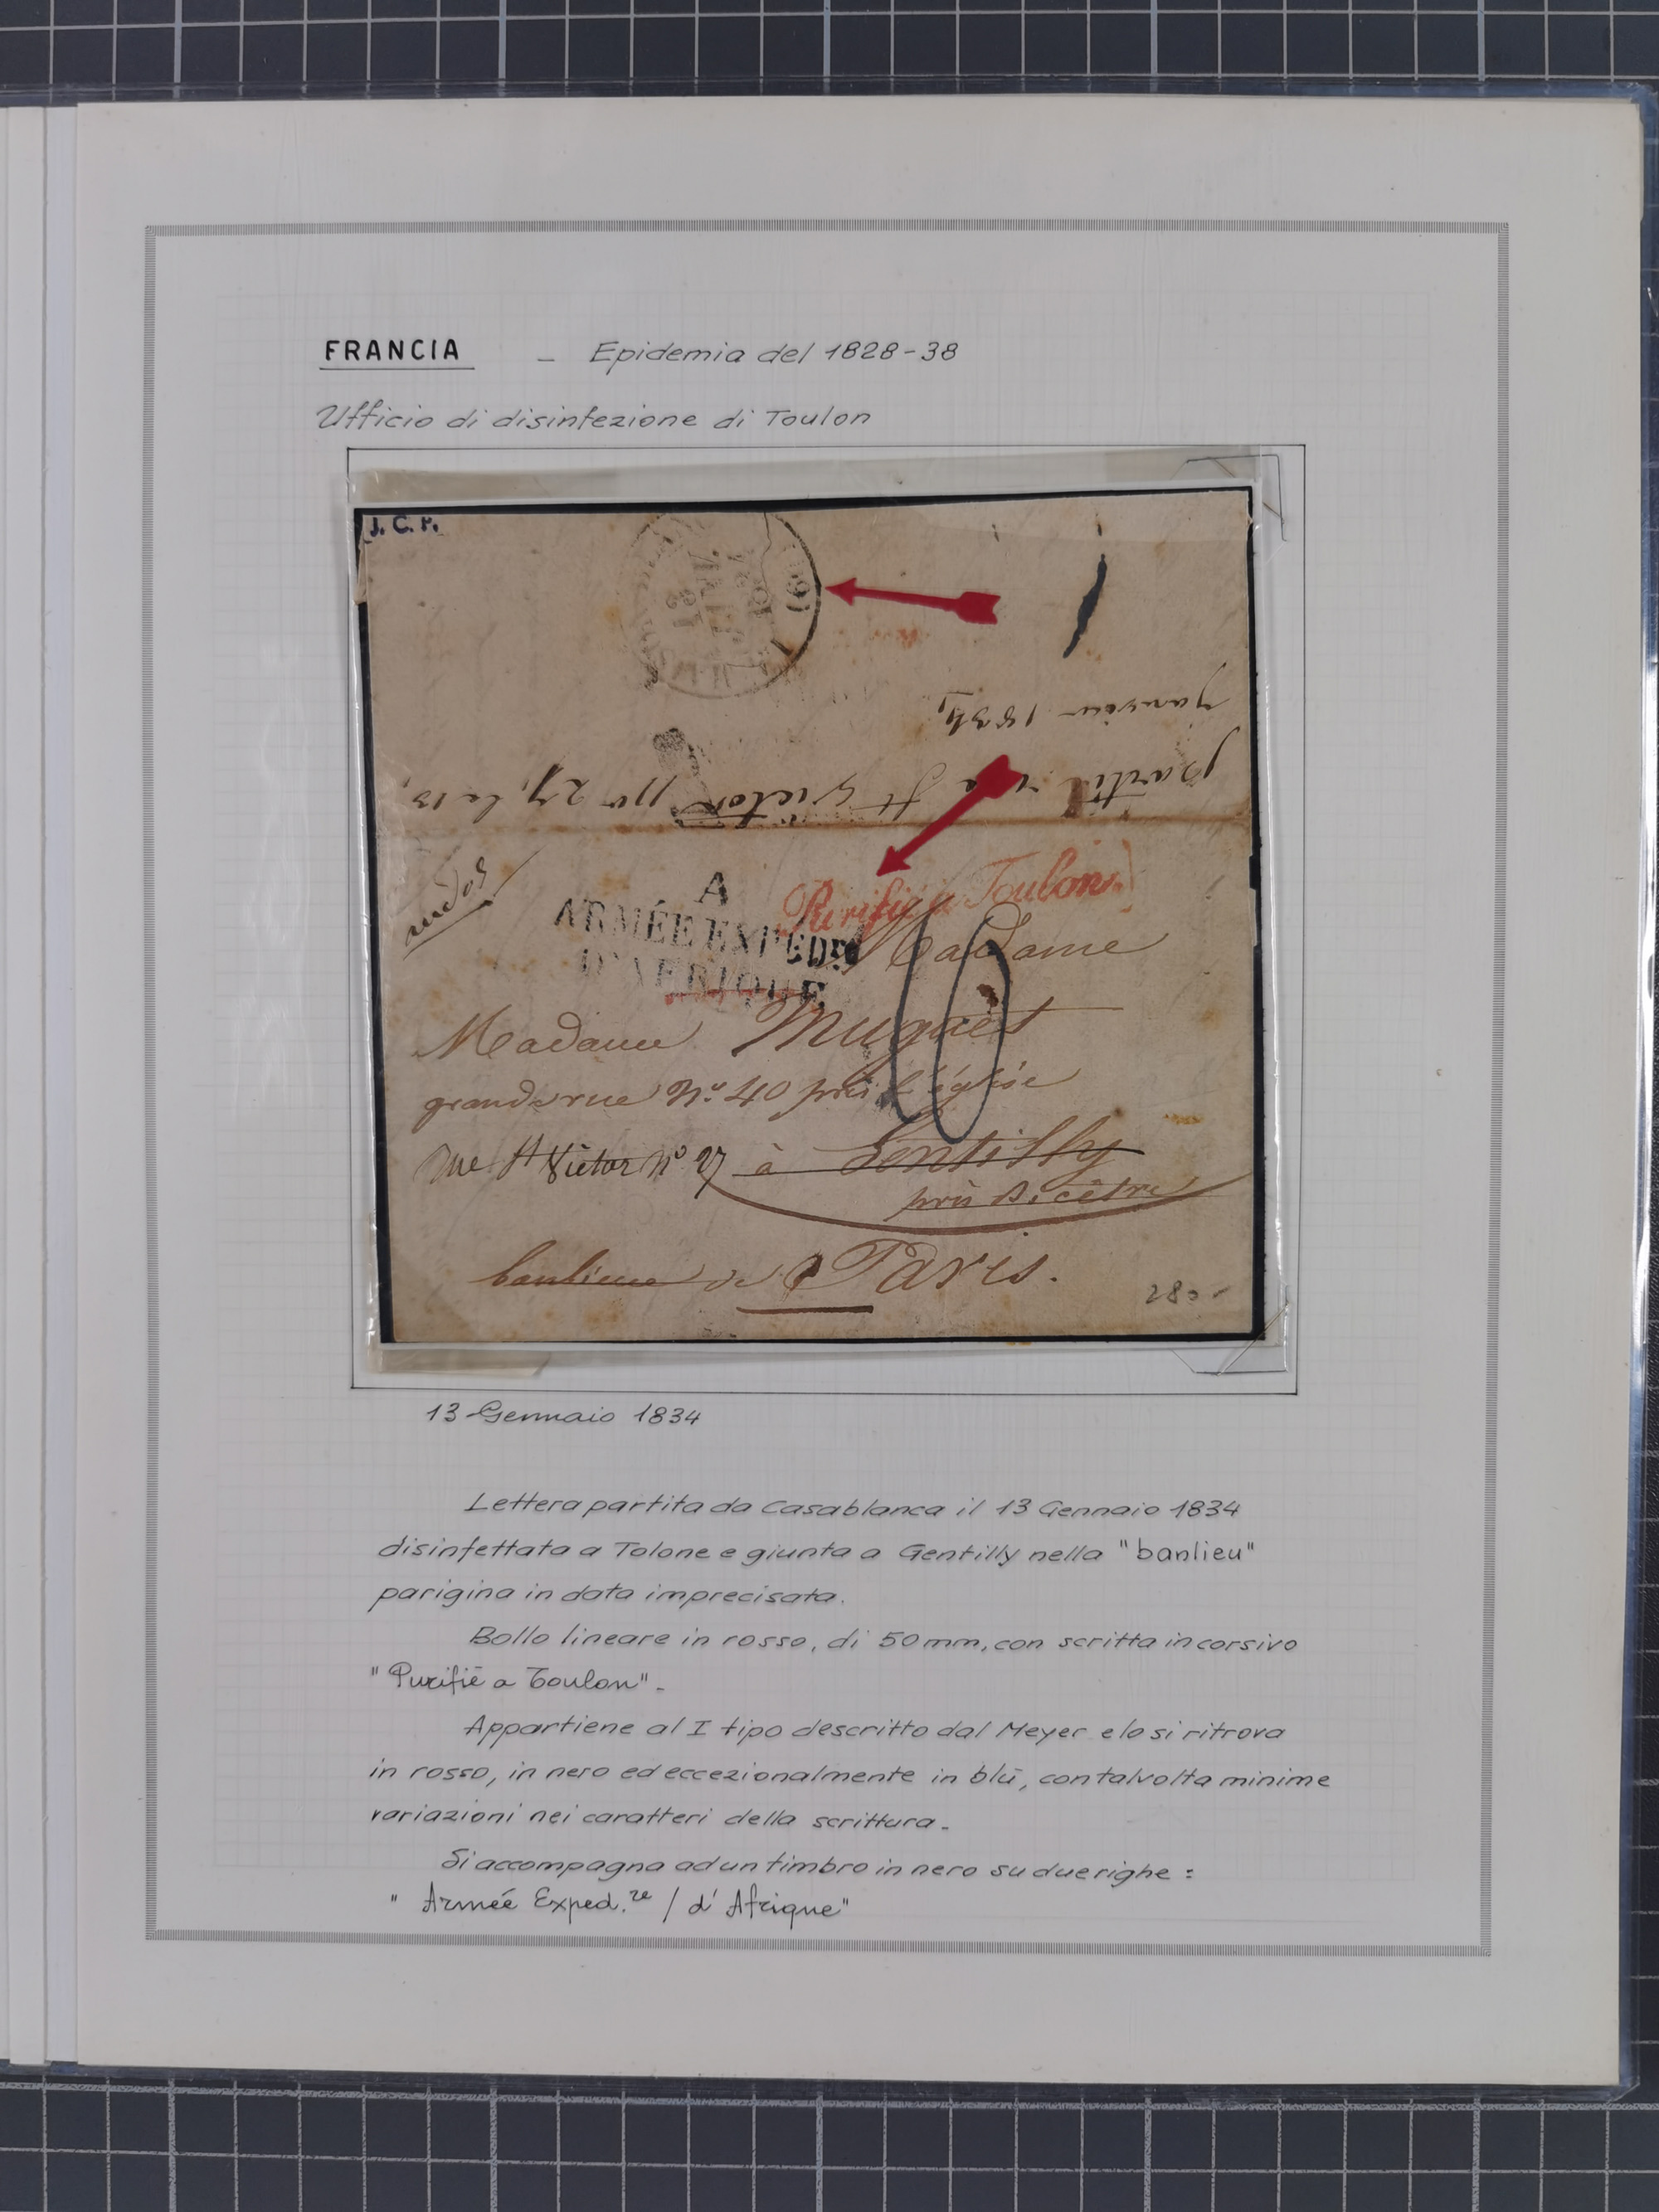 FRANCIA - Epidemia del 1828-38
Ufficio di disinfezione di Toulon
J. C. P.
janvier 1834
partil St Victor no 27, le 13,
A
Purifié a Toulon
ARMÉE EXPED.re
D'AFRIQUE
Madame
Madame Muguèt
grande rue No. 40 près l'église
rue St Victor No 27 à Gentilly
près Bicêtre
banlieue de Paris.
280-
13 Gennaio 1834
Lettera partita da Casablanca il 13 Gennaio 1834
disinfettata a Tolone e giunta a Gentilly nella "banlieu"
parigina in data imprecisata.
Bollo lineare in rosso, di 50 mm, con scritta in corsivo
"Purifiè a Toulon"-
Appartiene al I tipo descritto dal Meyer e lo si ritrova
in rosso, in nero ed eccezionalmente in blù, con talvolta minime
variazioni nei caratteri della scrittura-
Si accompagna ad un timbro in nero su due righe:
"Armée Exped.re / d'Afrique"